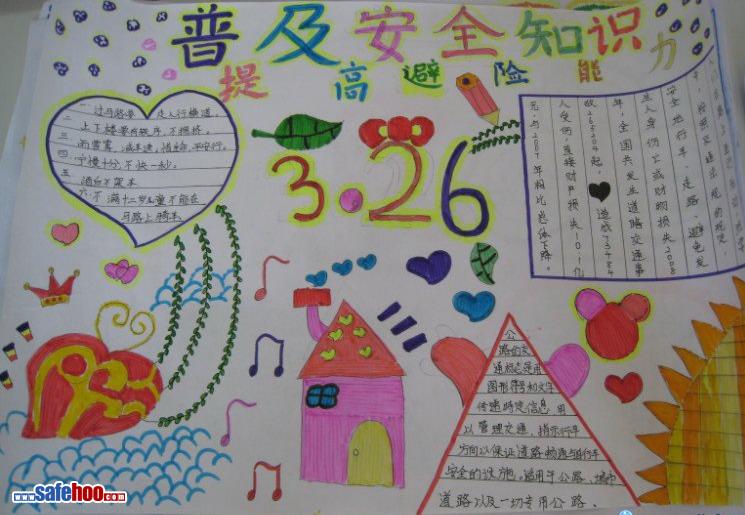 普及安全知识
提高避险能力
3.26
一、过马路要 走人行横道。
二、上下楼要有秩序,不拥挤。
三、雨雪雾,减速,惜生命,平安行。
四、宁慢十分,不快一秒。
五、酒后不驾车
六、不满十二岁儿童不能在
马路上骑车
安全地行车、走路,避免发
生人身伤亡或财物损失2008
年,全国共发生道路交通事
故265204起, 造成73484
人死伤,直接财产损失10.1亿
元,与2007年相比总体下降。
公
路的交
通标志是用
图形符号和文字
传递特定信息用
以管理交通、指示行车
方向以保证道路畅通与行车
安全的设施。适用于公路、城市
道路以及一切专用公路。
www.safehoo.com